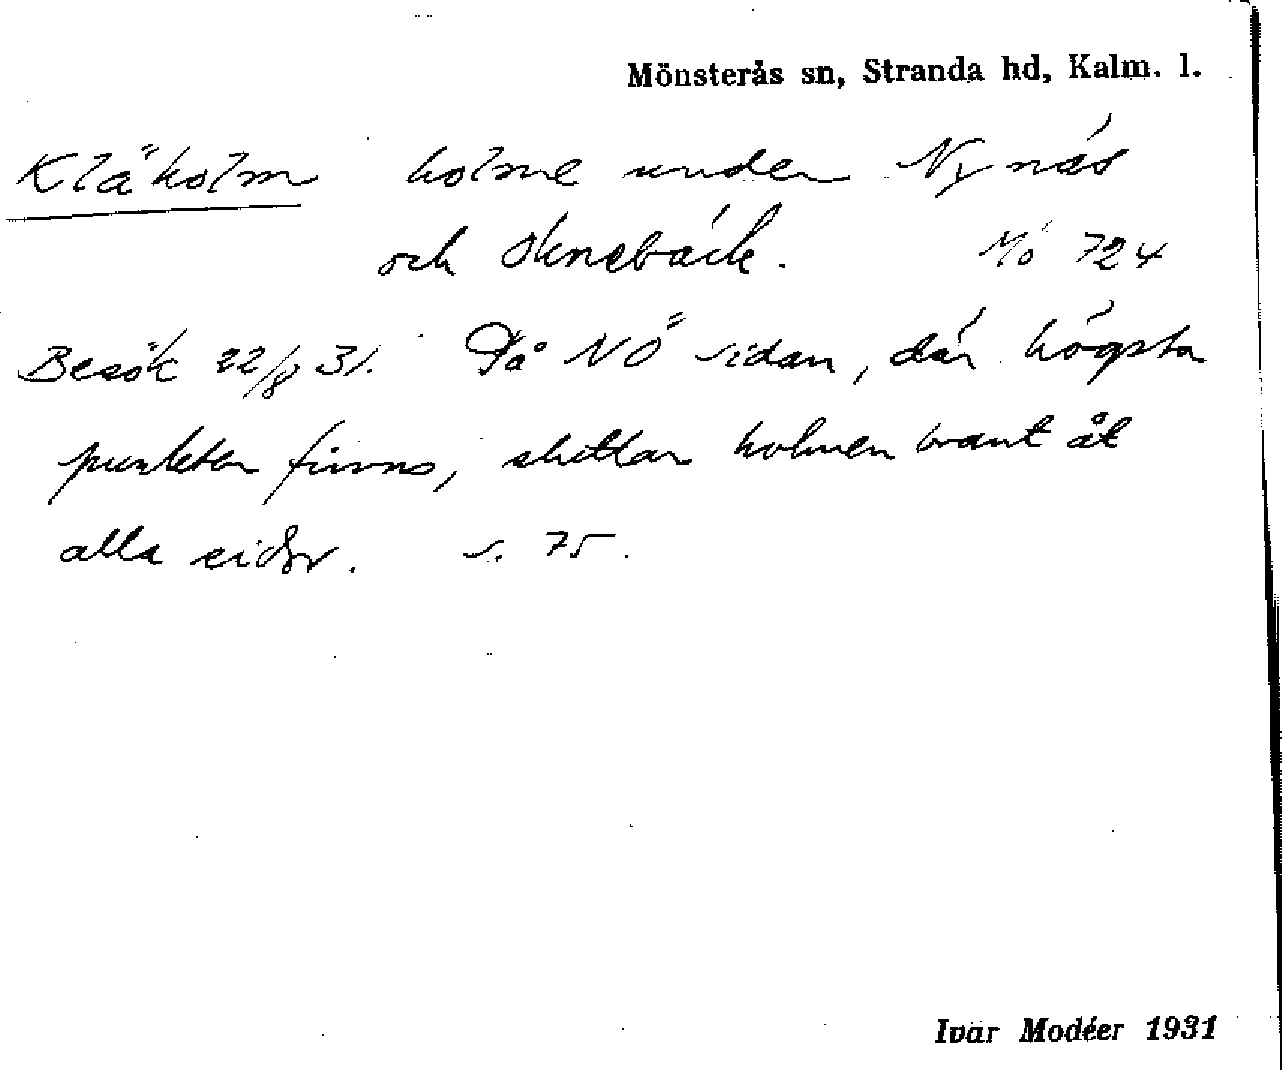 Mönsterås sn, Stranda hd, Kalm. l.
Kläholm holme under Nynäs
och Oknebäck. Mö 724
Besök 22/8 31. På NÖ sidan, där högsta
punkten finns, sluttar holmen brant åt
alla sidor. s. 75.
Ivar Modéer 1931